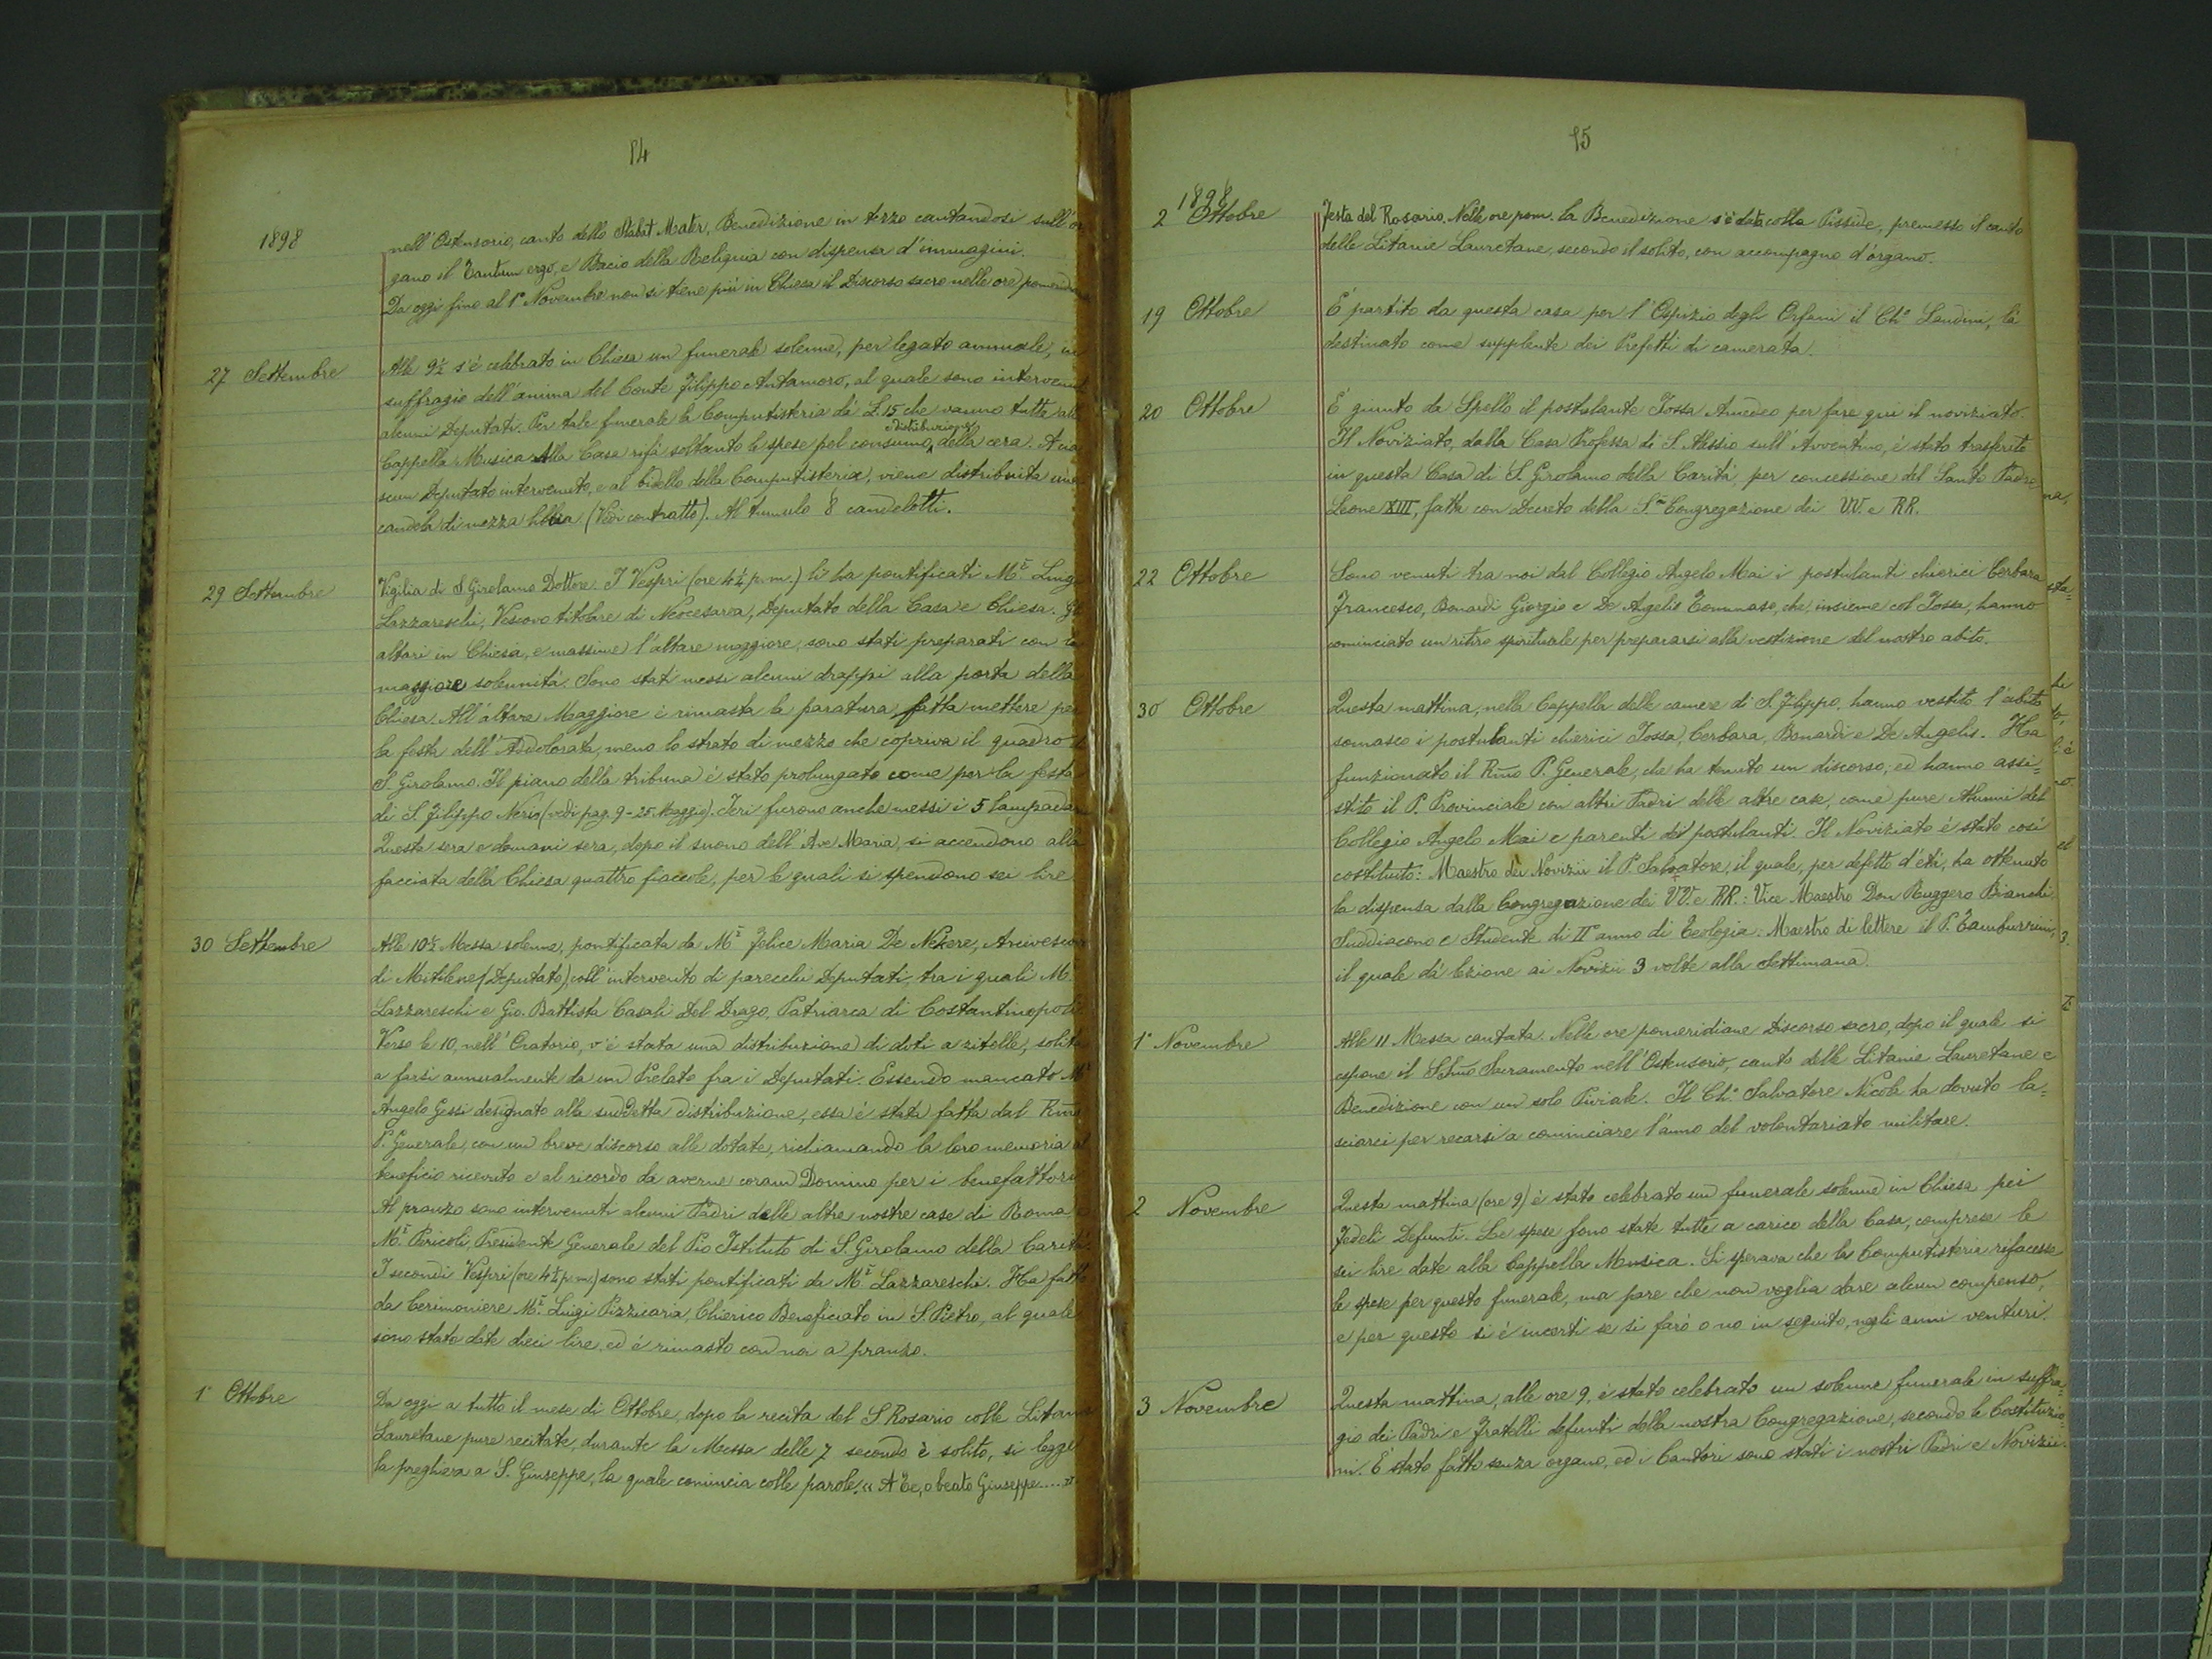 14
1898
nell'Ostensorio, canto dello Stabat Mater, Benedizione in terzo cantandosi sull'or
gano il Tantum ergo, e Bacio della Reliquia con dispensa d'immagini.
Da oggi fino al 1° Novembre non si tiene più in Chiesa il Discorso sacro nelle ore pomeridi
27 Settembre
Alle 9½ s'è celebrato in Chiesa un funerale solenne, per legato annuale, in
suffragio dell'anima del Conte Filippo Antamoro, al quale sono intervenuti
alcuni Deputati. Per tale funerale la Computisteria dà L. 15 che vanno tutte alla
Cappella Musica. Alla Casa rifà soltanto le spese pel consumo e distribuzione della cera. A cia
scun Deputato intervenuto, e al bidello della Computisteria, viene distribuita una
candela di mezza libbra (Vedi contratto). Al tumulo 8 candelotti.
29 Settembre
Vigilia di S. Girolamo Dottore. I Vespri (ore 4¼ p.m.) li ha pontificati Mr. Luigi
Lazzareschi, Vescovo titolare di Neocesarea, Deputato della Casa e Chiesa. Gli
altari in Chiesa, e massime l'altare maggiore, sono stati preparati con la
maggiore solennità. Sono stati messi alcuni drappi alla porta della
Chiesa. All'altare Maggiore è rimasta la paratura fatta mettere per
la festa dell'Addolorata, meno lo strato di mezzo che copriva il quadro di
S. Girolamo. Il piano della tribuna è stato prolungato come per la festa
di S. Filippo Neri (vedi pag. 9 - 25 Maggio). Ieri furono anche messi i 5 lampadari
Questa sera e domani sera, dopo il suono dell'Ave Maria, si accendono alla
facciata della Chiesa quattro fiaccole, per le quali si spendono sei lire
30 Settembre
Alle 10½ Messa solenne, pontificata da Mr. Felice Maria De Neckere, Arcivescovo
di Mitilene (Deputato), coll'intervento di parecchi Deputati, tra i quali Mr.
Lazzareschi e Gio. Battista Casali Del Drago, Patriarca di Costantinopoli
Verso le 10, nell'Oratorio, v'è stata una distribuzione di doti a zitelle, solita
a farsi annualmente da un Prelato fra i Deputati. Essendo mancato Mr.
Angelo Gessi designato alla suddetta distribuzione, essa è stata fatta dal Rmo
P. Generale, con un breve discorso alle dotate, richiamando la loro memoria al
beneficio ricevuto e al ricordo da averne coram Domino per i benefattori
Al pranzo sono intervenuti alcuni Padri delle altre nostre case di Roma e
Mr. Pericoli, Presidente Generale del Pio Istituto di S. Girolamo della Carità.
I secondi Vespri (ore 4¼ p.m.) sono stati pontificati da Mr. Lazzareschi. Ha fatto
da Cerimoniere Mr. Luigi Pizzicaria, Chierico Beneficiato in S. Pietro, al quale
sono state date dieci lire, ed è rimasto con noi a pranzo.
1° Ottobre
Da oggi a tutto il mese di Ottobre, dopo la recita del S. Rosario colle Litanie
Lauretane pure recitate, durante la Messa delle 7 secondo è solito, si legge
la preghiera a S. Giuseppe, la quale comincia colle parole: « A Te, o beato Giuseppe.... »
15
1898
2 Ottobre
Festa del Rosario. Nelle ore pom. la Benedizione s'è data colla Pisside, premesso il canto
delle Litanie Lauretane, secondo il solito, con accompagno d'organo.
19 Ottobre
È partito da questa casa per l'Ospizio degli Orfani il Ch° Landini, là
destinato come supplente dei Prefetti di camerata.
20 Ottobre
È giunto da Spello il postulante Tossa Amedeo per fare qui il noviziato.
Il Noviziato, dalla Casa Professa di S. Alessio sull'Aventino, è stato trasferito
in questa Casa di S. Girolamo della Carità, per concessione del Santo Padre
Leone XIII, fatta con Decreto della S. Congregazione dei VV. e RR.
22 Ottobre
Sono venuti tra noi dal Collegio Angelo Mai i postulanti chierici Cerbara
Francesco, Bonardi Giorgio e De Angelis Tommaso, che, insieme col Tossa, hanno
cominciato un ritiro spirituale per prepararsi alla vestizione del nostro abito.
30 Ottobre
Questa mattina, nella Cappella delle camere di S. Filippo, hanno vestito l'abito
somasco i postulanti chierici Tossa, Cerbara, Bonardi e De Angelis. Ha
funzionato il Rmo P. Generale, che ha tenuto un discorso, ed hanno assi=
stito il P. Provinciale con altri Padri delle altre case, come pure Alunni del
Collegio Angelo Mai e parenti dei postulanti. Il Noviziato è stato così
costituito: Maestro dei Novizii il P. Salvatore, il quale, per difetto d'età, ha ottenuto
la dispensa dalla Congregazione dei VV. e RR.: Vice Maestro Don Ruggero Bianchi
Suddiacono e Studente di II° anno di Teologia. Maestro di lettere il P. Tamburrini,
il quale dà lezione ai Novizii 3 volte alla Settimana.
1° Novembre
Alle 11 Messa cantata. Nelle ore pomeridiane Discorso sacro, dopo il quale si
espone il SSmo Sacramento nell'Ostensorio, canto delle Litanie Lauretane e
Benedizione con un solo Piviale. Il Ch° Salvatore Nicola ha dovuto la=
sciarci per recarsi a cominciare l'anno del volontariato militare.
2 Novembre
Questa mattina (ore 9) è stato celebrato un funerale solenne in Chiesa pei
Fedeli Defunti. Le spese sono state tutte a carico della Casa, comprese le
sei lire date alla Cappella Musica. Si sperava che la Computisteria rifacesse
le spese per questo funerale, ma pare che non voglia dare alcun compenso,
e per questo si è incerti se si farà o no in seguito, negli anni venturi.
3 Novembre
Questa mattina, alle ore 9, è stato celebrato un solenne funerale in suffra=
gio dei Padri e Fratelli defunti della nostra Congregazione, secondo le Costituzio=
ni. È stato fatto senza organo, ed i Cantori sono stati i nostri Padri e Novizii.